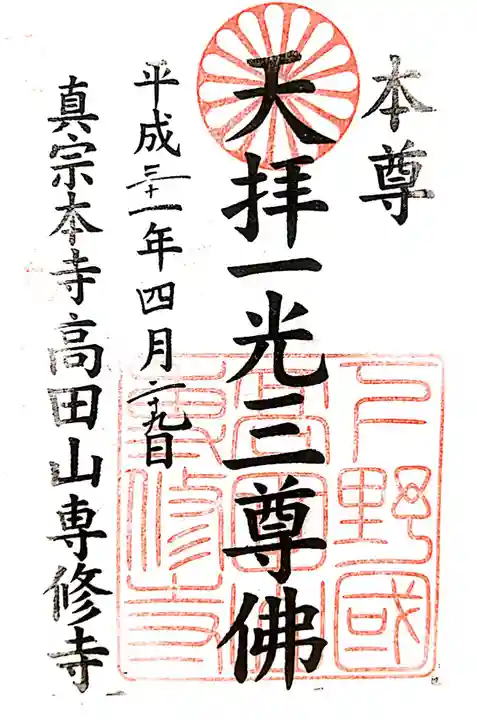 本尊
天拝一光三尊佛
平成三十一年四月二十九日
真宗本寺高田山専修寺
下野國
高田山
專修寺